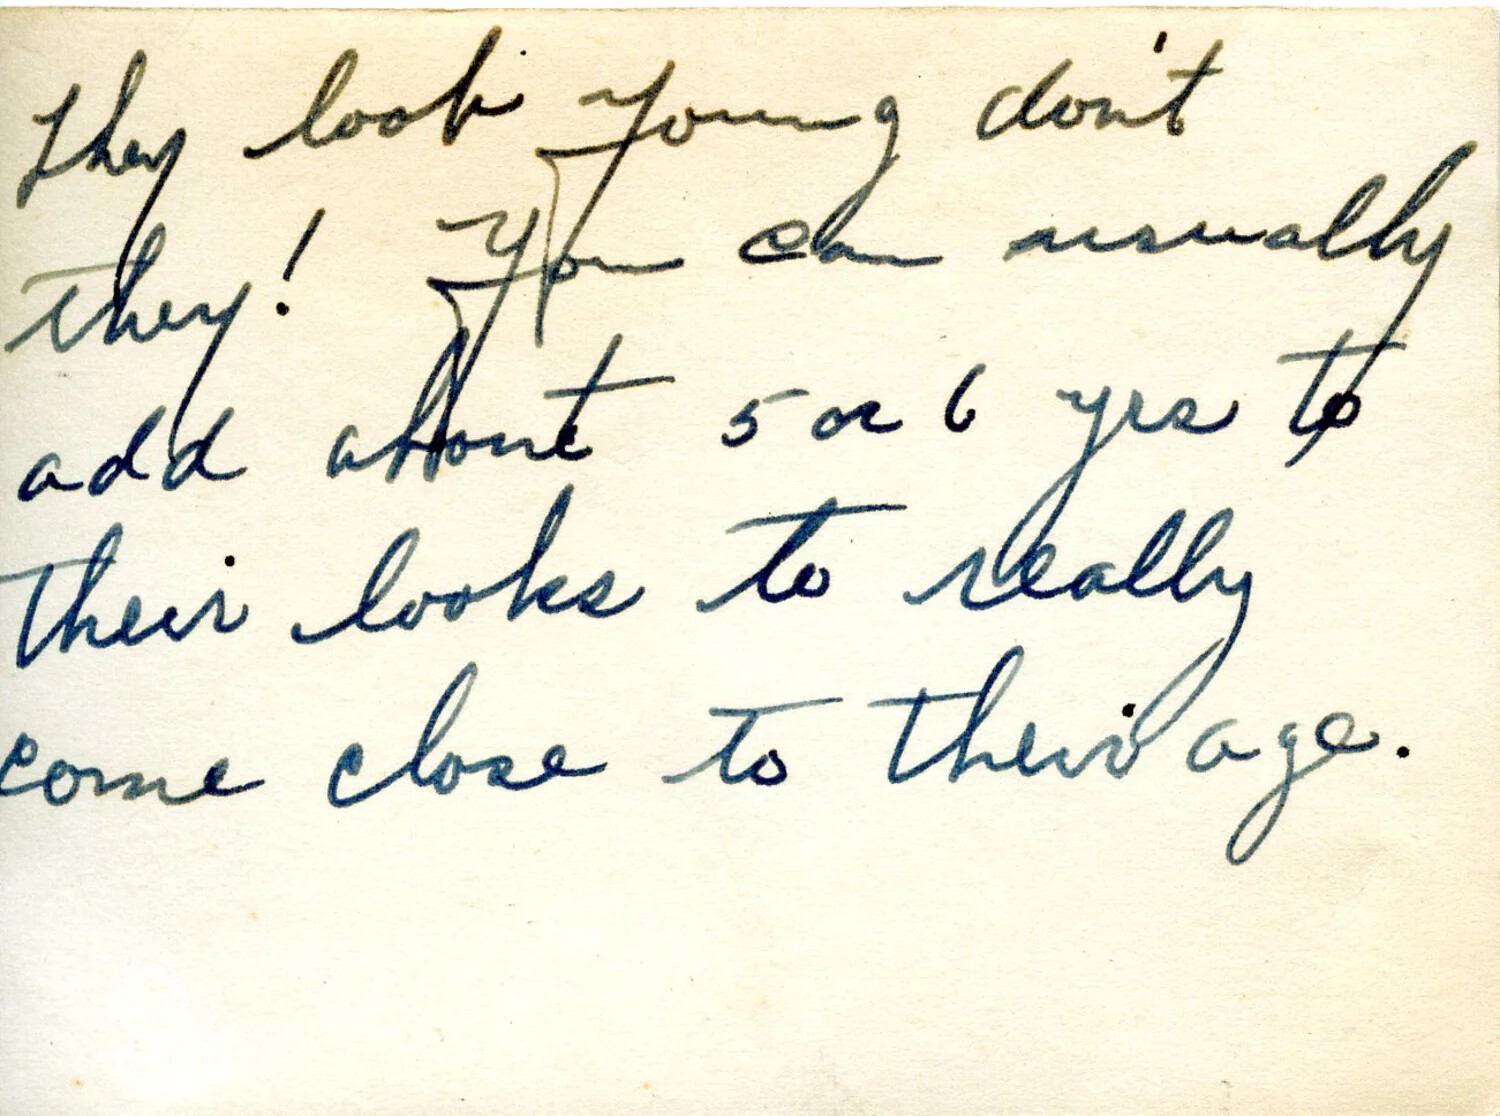 They look young don't
they! You can usually
add about 5 or 6 yrs to
their looks to really
come close to their age.